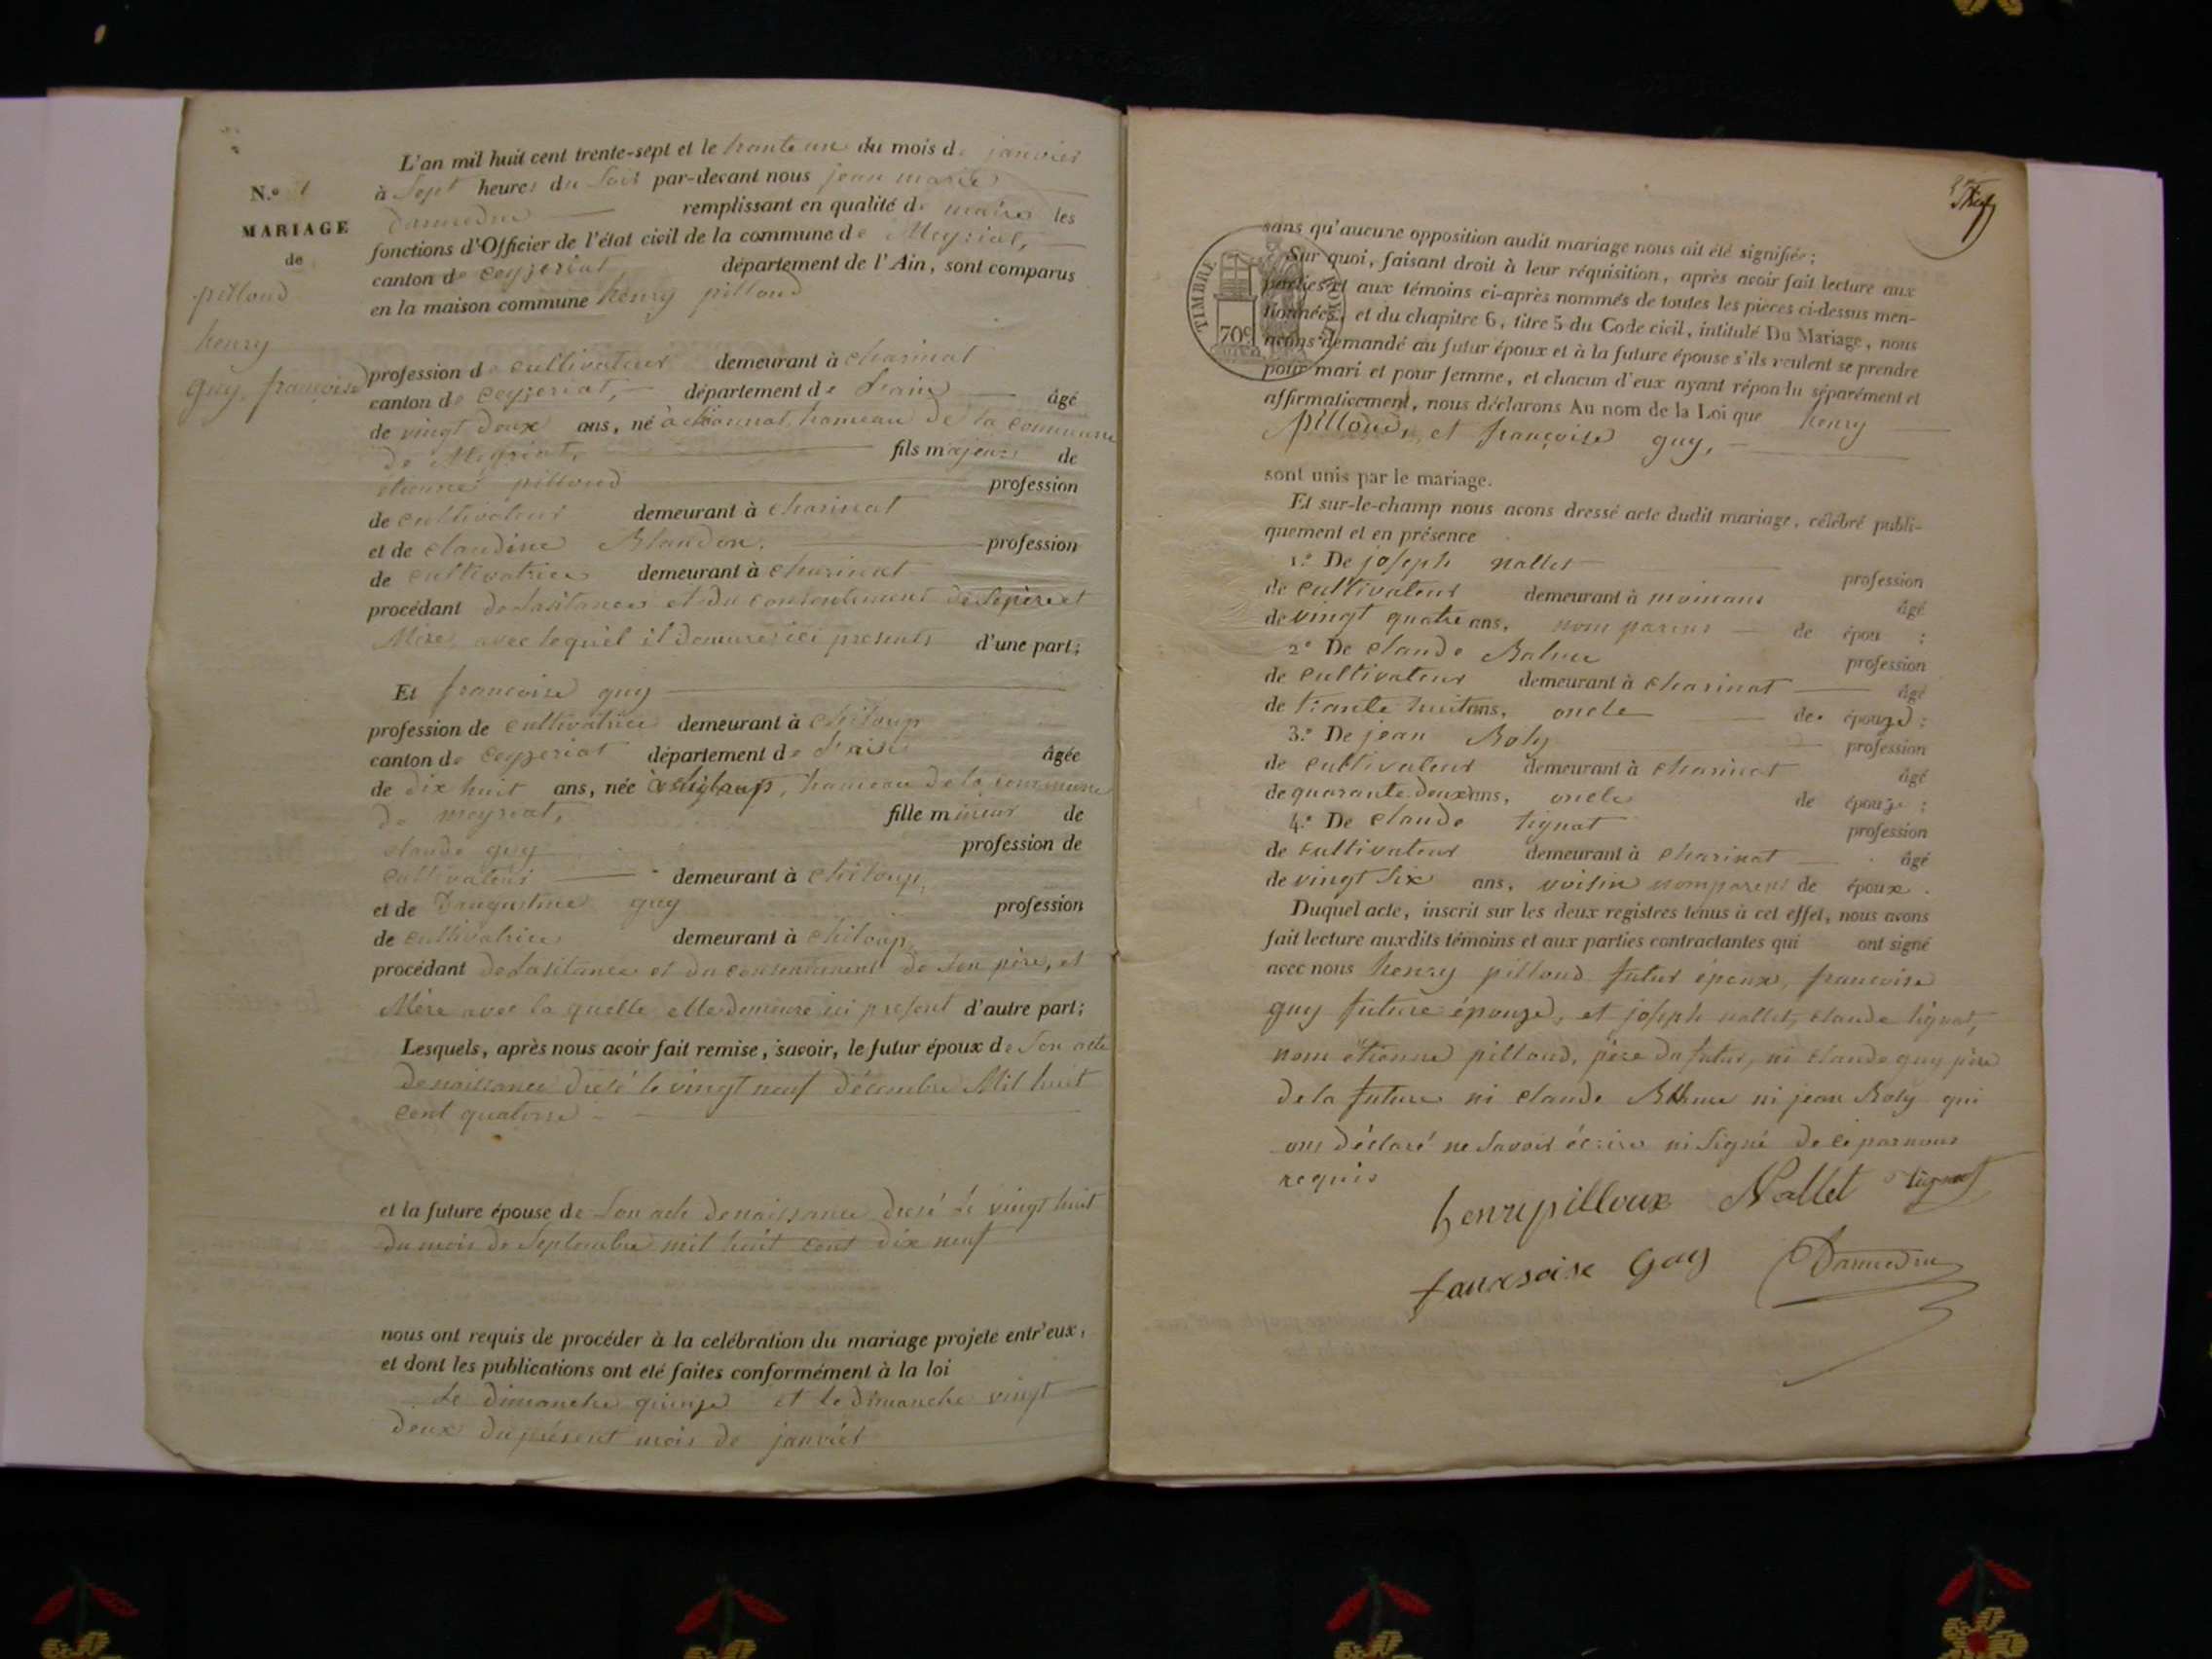 N.o 1
MARIAGE
de
pilloud
henry
guy françoise
L'an mil huit cent trente-sept et le trante une du mois de janvier
à Sept heures du Soir par-devant nous jean marie
Damedin remplissant en qualité de maire les
fonctions d'Officier de l'état civil de la commune de Meyriat,
canton de ceyzeriat département de l'Ain, sont comparus
en la maison commune henry pilloud
profession de cultivateur demeurant à charinat
canton de ceyzeriat, département de l'ain âgé
de vingt deux ans, né à hameau de la commune
de Meyriat, fils majeur de
étienne pilloud profession
de cultivateur demeurant à charinat
et de claudine Blandon, profession
de cultivatrice demeurant à charinat
procédant de lasitance et du consentement de Sepère et
Mère, avec lequel il demeure ici presents d'une part;
Et francoise guy
profession de cultivatrice demeurant à chiloup
canton de ceyzeriat département de l'ain âgée
de dix huit ans, née à chiloup, hameau de la commune
de meyriat, fille mineur de
claude guy profession de
cultivateur demeurant à chiloup,
et de guy profession
de cultivatrice demeurant à chiloup,
procédant de lasitance et du consentement de Son père, et
Mère avec la quelle elle demeure ici present d'autre part;
Lesquels, après nous avoir fait remise, savoir, le futur époux de Son acte
de naissance dresé le vingt neuf décembre Mil huit
cent quatorse
et la future épouse de Son acte de naissance dresé le vingt huit
du mois de Septembre mil huit cent dix neuf
nous ont requis de procéder à la celébration du mariage projeté entr'eux,
et dont les publications ont eté faites conformément à la loi
Le dimanche quinze et le dimanche vingt
deux du présent mois de janvier
sans qu'aucune opposition audit mariage nous ait été signifiée;
Sur quoi, faisant droit à leur réquisition, après avoir fait lecture aux
parties et aux témoins ci-après nommés de toutes les pieces ci-dessus men-
tionnées, et du chapitre 6, titre 5 du Code civil, intitulé Du Mariage, nous
avons demandé au futur époux et à la future épouse s'ils veulent se prendre
pour mari et pour femme, et chacun d'eux ayant répondu séparément et
affirmativement, nous déclarons Au nom de la Loi que henry
pilloud, et françoise guy,
TIMBRE ROYAL
70c
sont unis par le mariage.
Et sur-le-champ nous avons dressé acte dudit mariage, célébré publi-
quement et en présence
1.o De joseph nallet profession
de cultivateur demeurant à moinans âgé
de vingt quatre ans, nom parens de épou ;
2.o De claude Balme profession
de cultivateur demeurant à charinat âgé
de trante huit ans, oncle de épouze ;
3.o De jean Boly profession
de cultivateur demeurant à charinat âgé
de quarante deux ans, oncle de épouze ;
4.o De claude tignat profession
de cultivateur demeurant à charinat âgé
de vingt Six ans, voisin nomparens de époux .
Duquel acte, inscrit sur les deux registres tenus à cet effet, nous avons
fait lecture auxdits témoins et aux parties contractantes qui ont signé
avec nous henry pilloud futur époux, francoise
guy future épouze, et joseph nallet, claude tignat,
nom étienne pilloud, père du futur, ni claude guy père
de la future ni claude Balme ni jean Boly qui
ons déclaré ne Savoir écrire ni Signé de ce par nous
requis
henri pilloux Nallet tignat
fanrsoise Gay Damedin